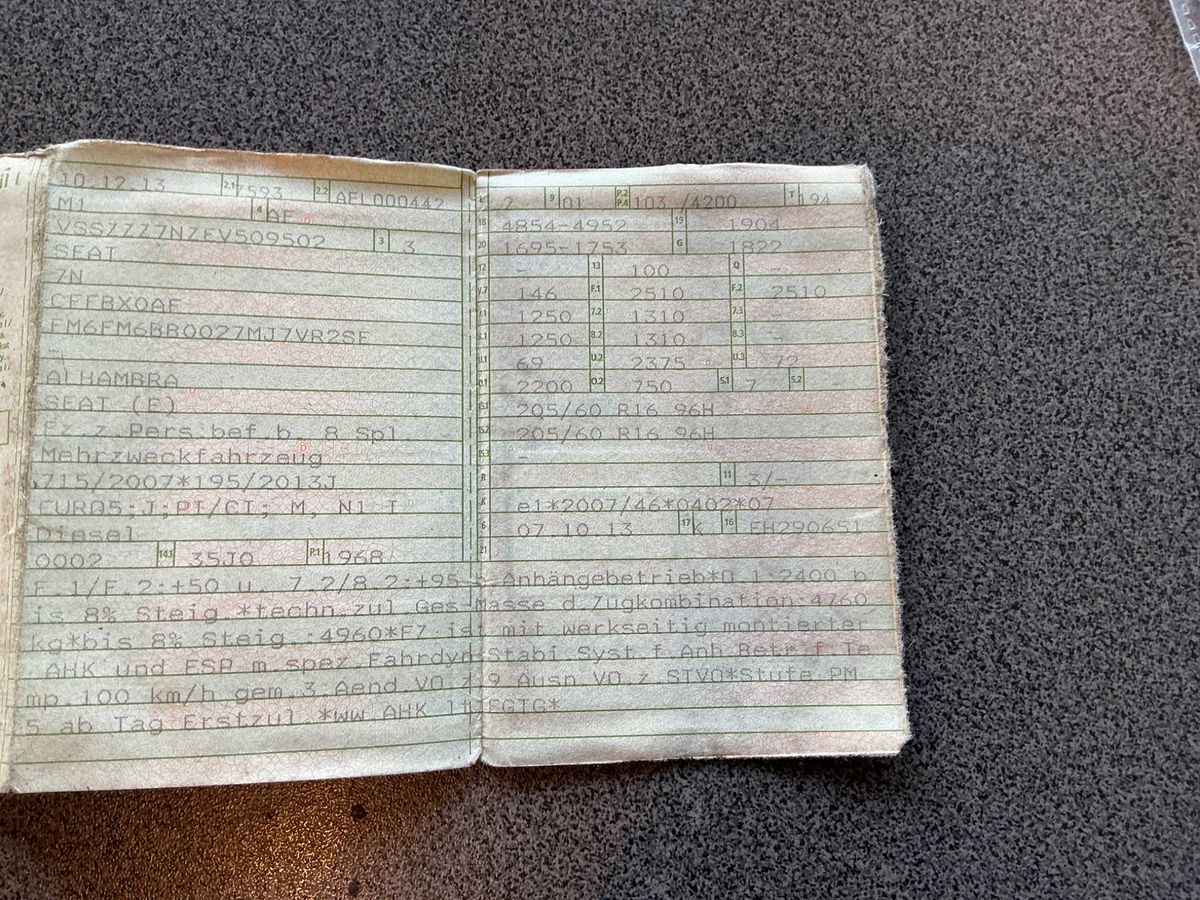 10.12.13 2.1 7593 2.2 AFL000442
M1 4 AF
VSSZZZ7NZEV509502 3 3
SEAT
7N
CFFBX0AF
FM6FM6BB0027MJ7VR2SF
-
ALHAMBRA
SEAT (E)
Fz.z.Pers.bef.b. 8 Spl.
Mehrzweckfahrzeug
715/2007*195/2013J
EURO5;J;PI/CI; M, N1 I
Diesel
0002 14.1 35J0 P.1 1968
L 2 9 01 P.2 P.4 103 /4200 T 194
18 4854-4952 19 1904
20 1695-1753 G 1822
12 - 13 100 Q -
V.7 146 F.1 2510 F.2 2510
7.1 1250 7.2 1310 7.3 -
8.1 1250 8.2 1310 8.3 -
U.1 69 U.2 2375 U.3 72
O.1 2200 O.2 750 S.1 7 S.2
15.1 205/60 R16 96H
15.2 205/60 R16 96H
15.3 -
R 11 3/-
K e1*2007/46*0402*07
6 07.10.13 17 k 16 EH290651
21
F.1/F.2:+50 u. 7.2/8.2:+95 b. Anhängebetrieb*O.1:2400 b
is 8% Steig.*techn.zul.Ges-Masse d.Zugkombination:4760
kg*bis 8% Steig.:4960*FZ ist mit werkseitig montierter
AHK und ESP m.spez.Fahrdyn-Stabi.Syst.f.Anh.Betr.f.Te
mp.100 km/h gem.3.Aend VO z.9 Ausn.VO.z.STVO*Stufe PM
5 ab Tag Erstzul.*ww.AHK